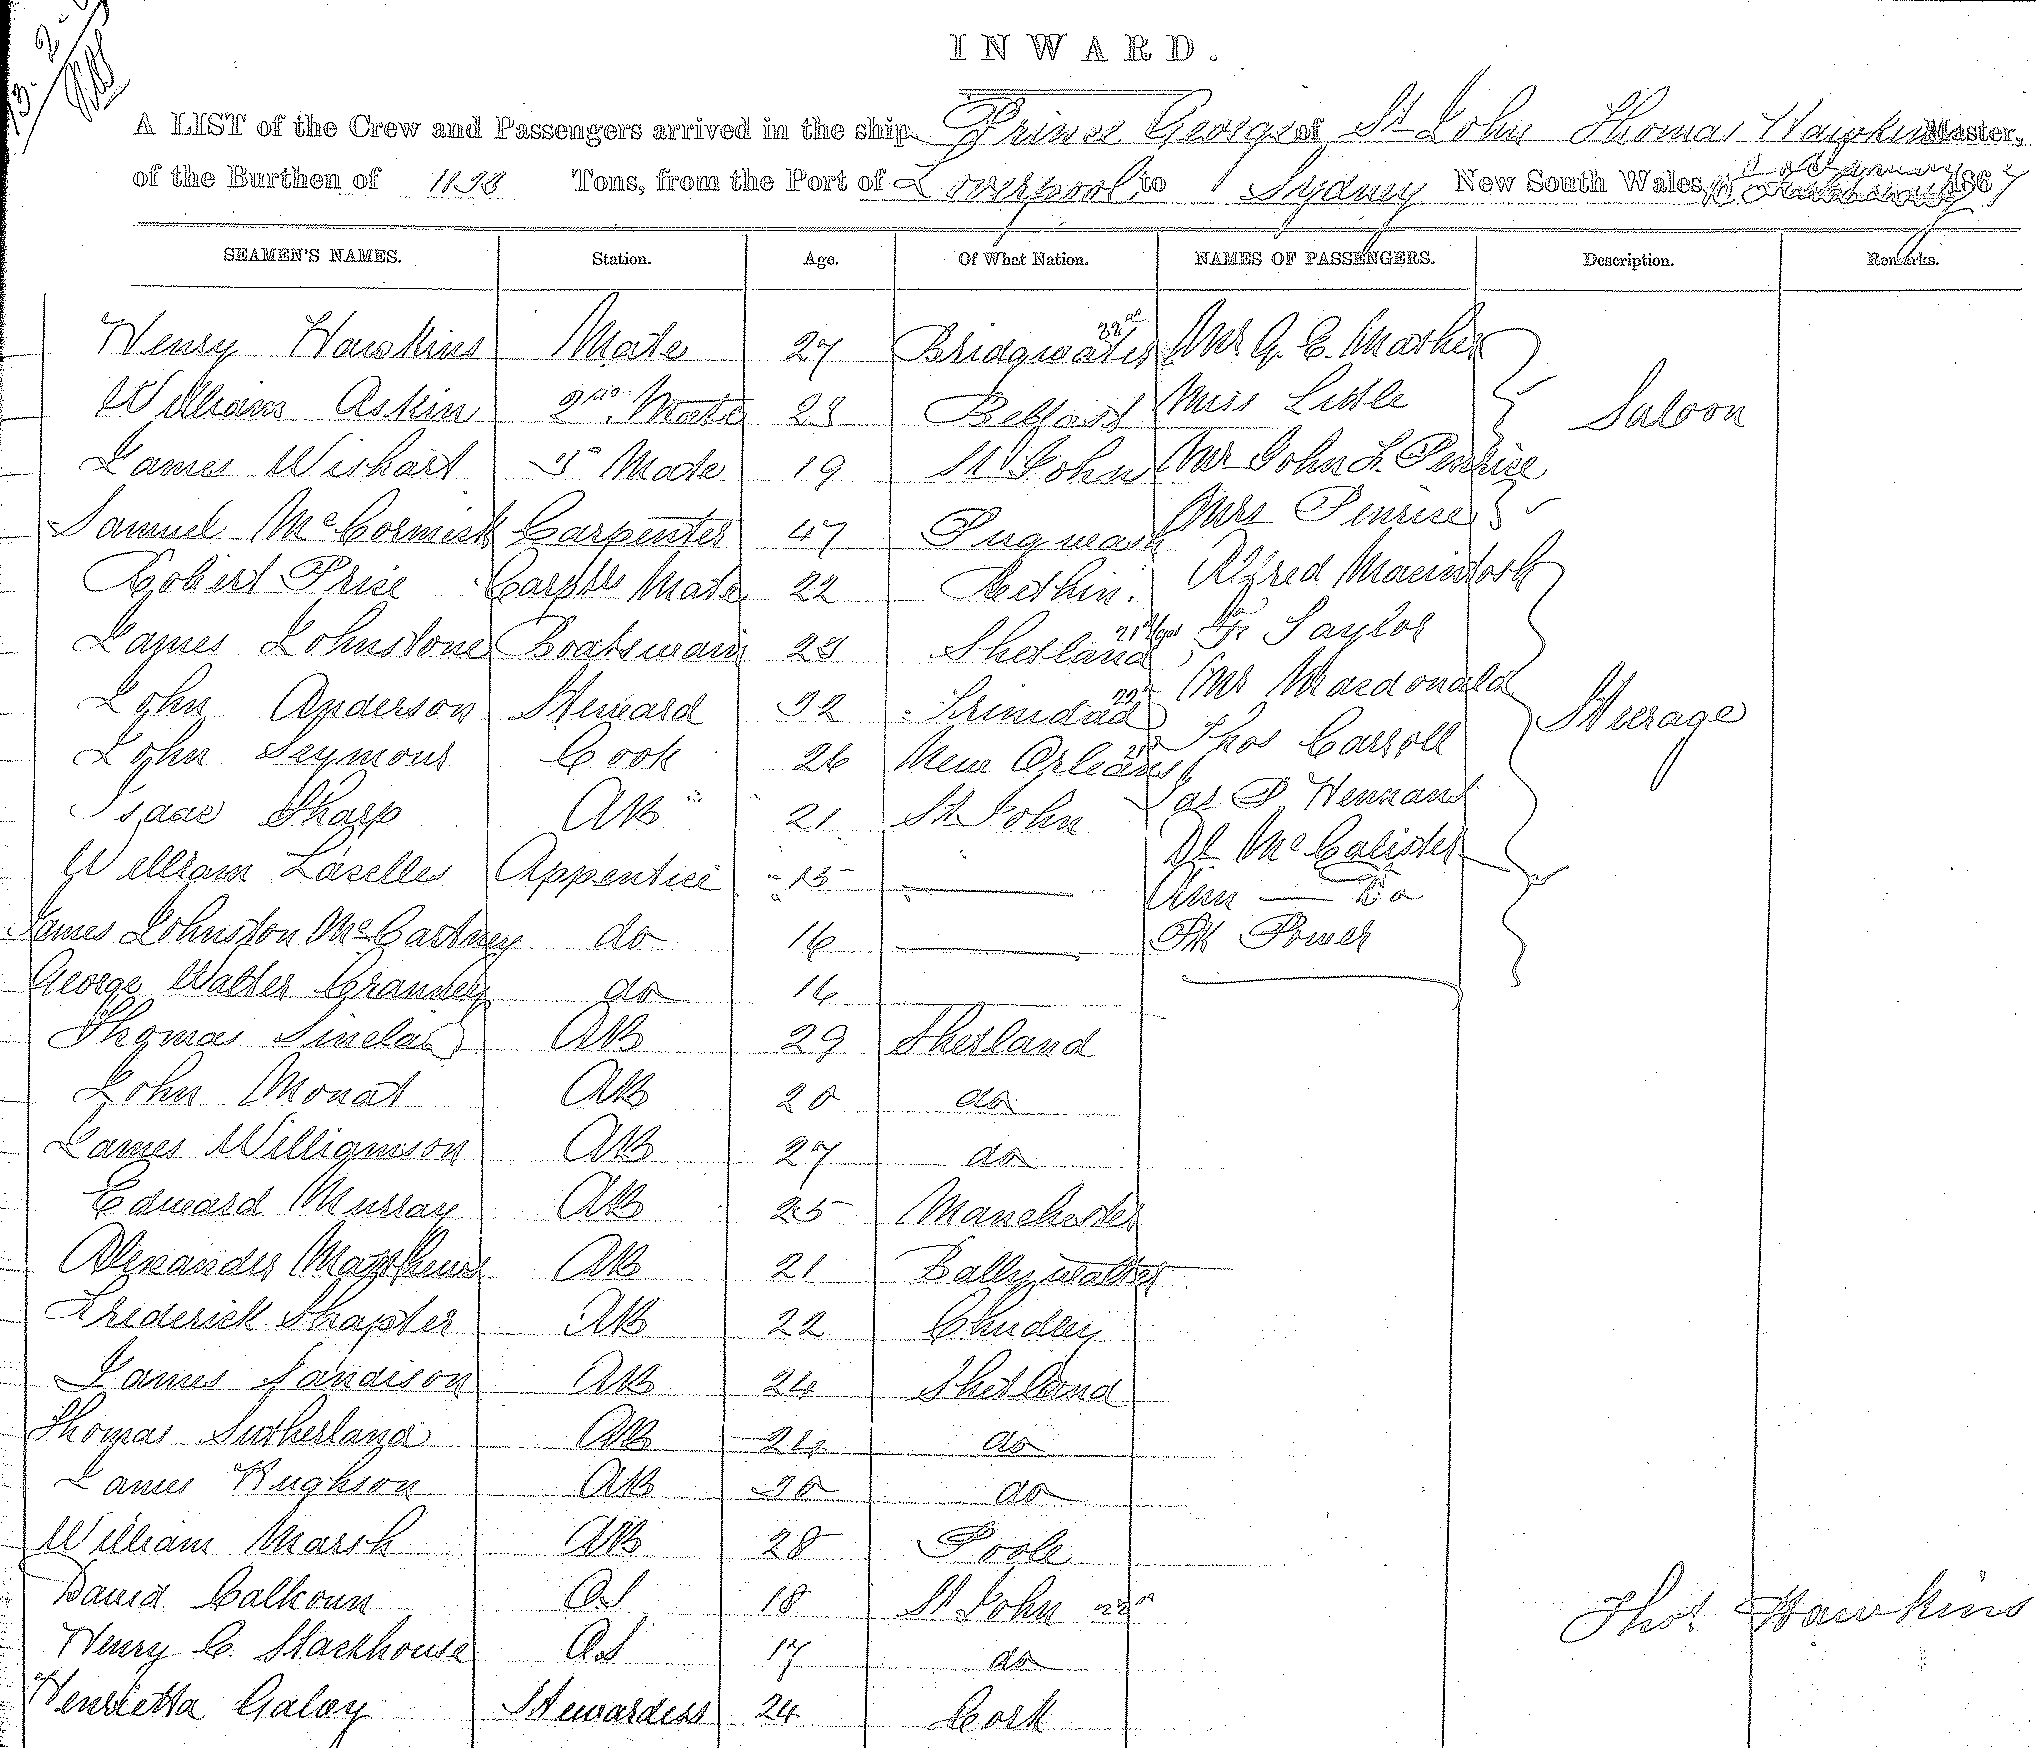 INWARD.
A LIST of the Crew and Passengers arrived in the ship Prince George of St John Thomas Hawkins Master,
of the Burthen of 1198 Tons, from the Port of Liverpool to Sydney New South Wales, 1867
SEAMEN'S NAMES. Station. Age. Of What Nation. NAMES OF PASSENGERS. Description. Remarks.
Henry Hawkins Mate 27 Bridgwater Mr G. E. Mather
William Askin 2nd Mate 28 Belfast Miss Lisle Saloon
James Wishart 3 Mate 19 St John Mr John L. Penrise
Samuel McCormick Carpenter 47 Pugwash Mrs Penrise
Robert Price Carptrs Mate 22 Rethin. Alfred Macintosh
James Johnstone Boatswain 23 Shetland Taylor
John Anderson Steward 32 Trinidad Mr Macdonald Steerage
John Seymour Cook 26 New Orleans Thos Carroll
Isaac Sharp AB 21 St John Jas P Hennant
William Laselles Appentice 15 McCalister
James Johnston McCartney do 16 Ann — Do
George Walter do 16 Pk Power
Thomas Sinclair AB 29 Shetland
John Monat AB 20 do
James Williamson AB 27 do
Edward Murray AB 25 Manchester
Alexander AB 21 Ballywalter
Frederick Shapter AB 22 Chudley
James Sandison AB 24 Shetland
Thomas Sutherland AB 24 do
James Hughson AB 30 do
William Marsh AB 28 Poole
David Calhoun OS 18 St John
Thos Hawkins
Henry C. Stackhouse OS 17 do
Henrietta Galoy Stewardess 24 Cork